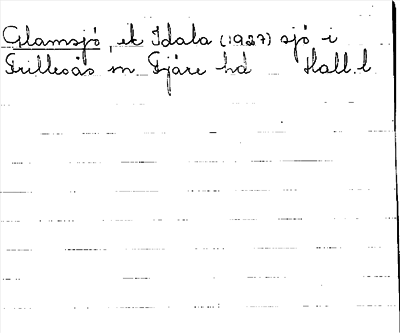 Glamsjö, ek Idala (1927) sjö i
Frillesås sn Fjäre hd Hall. l